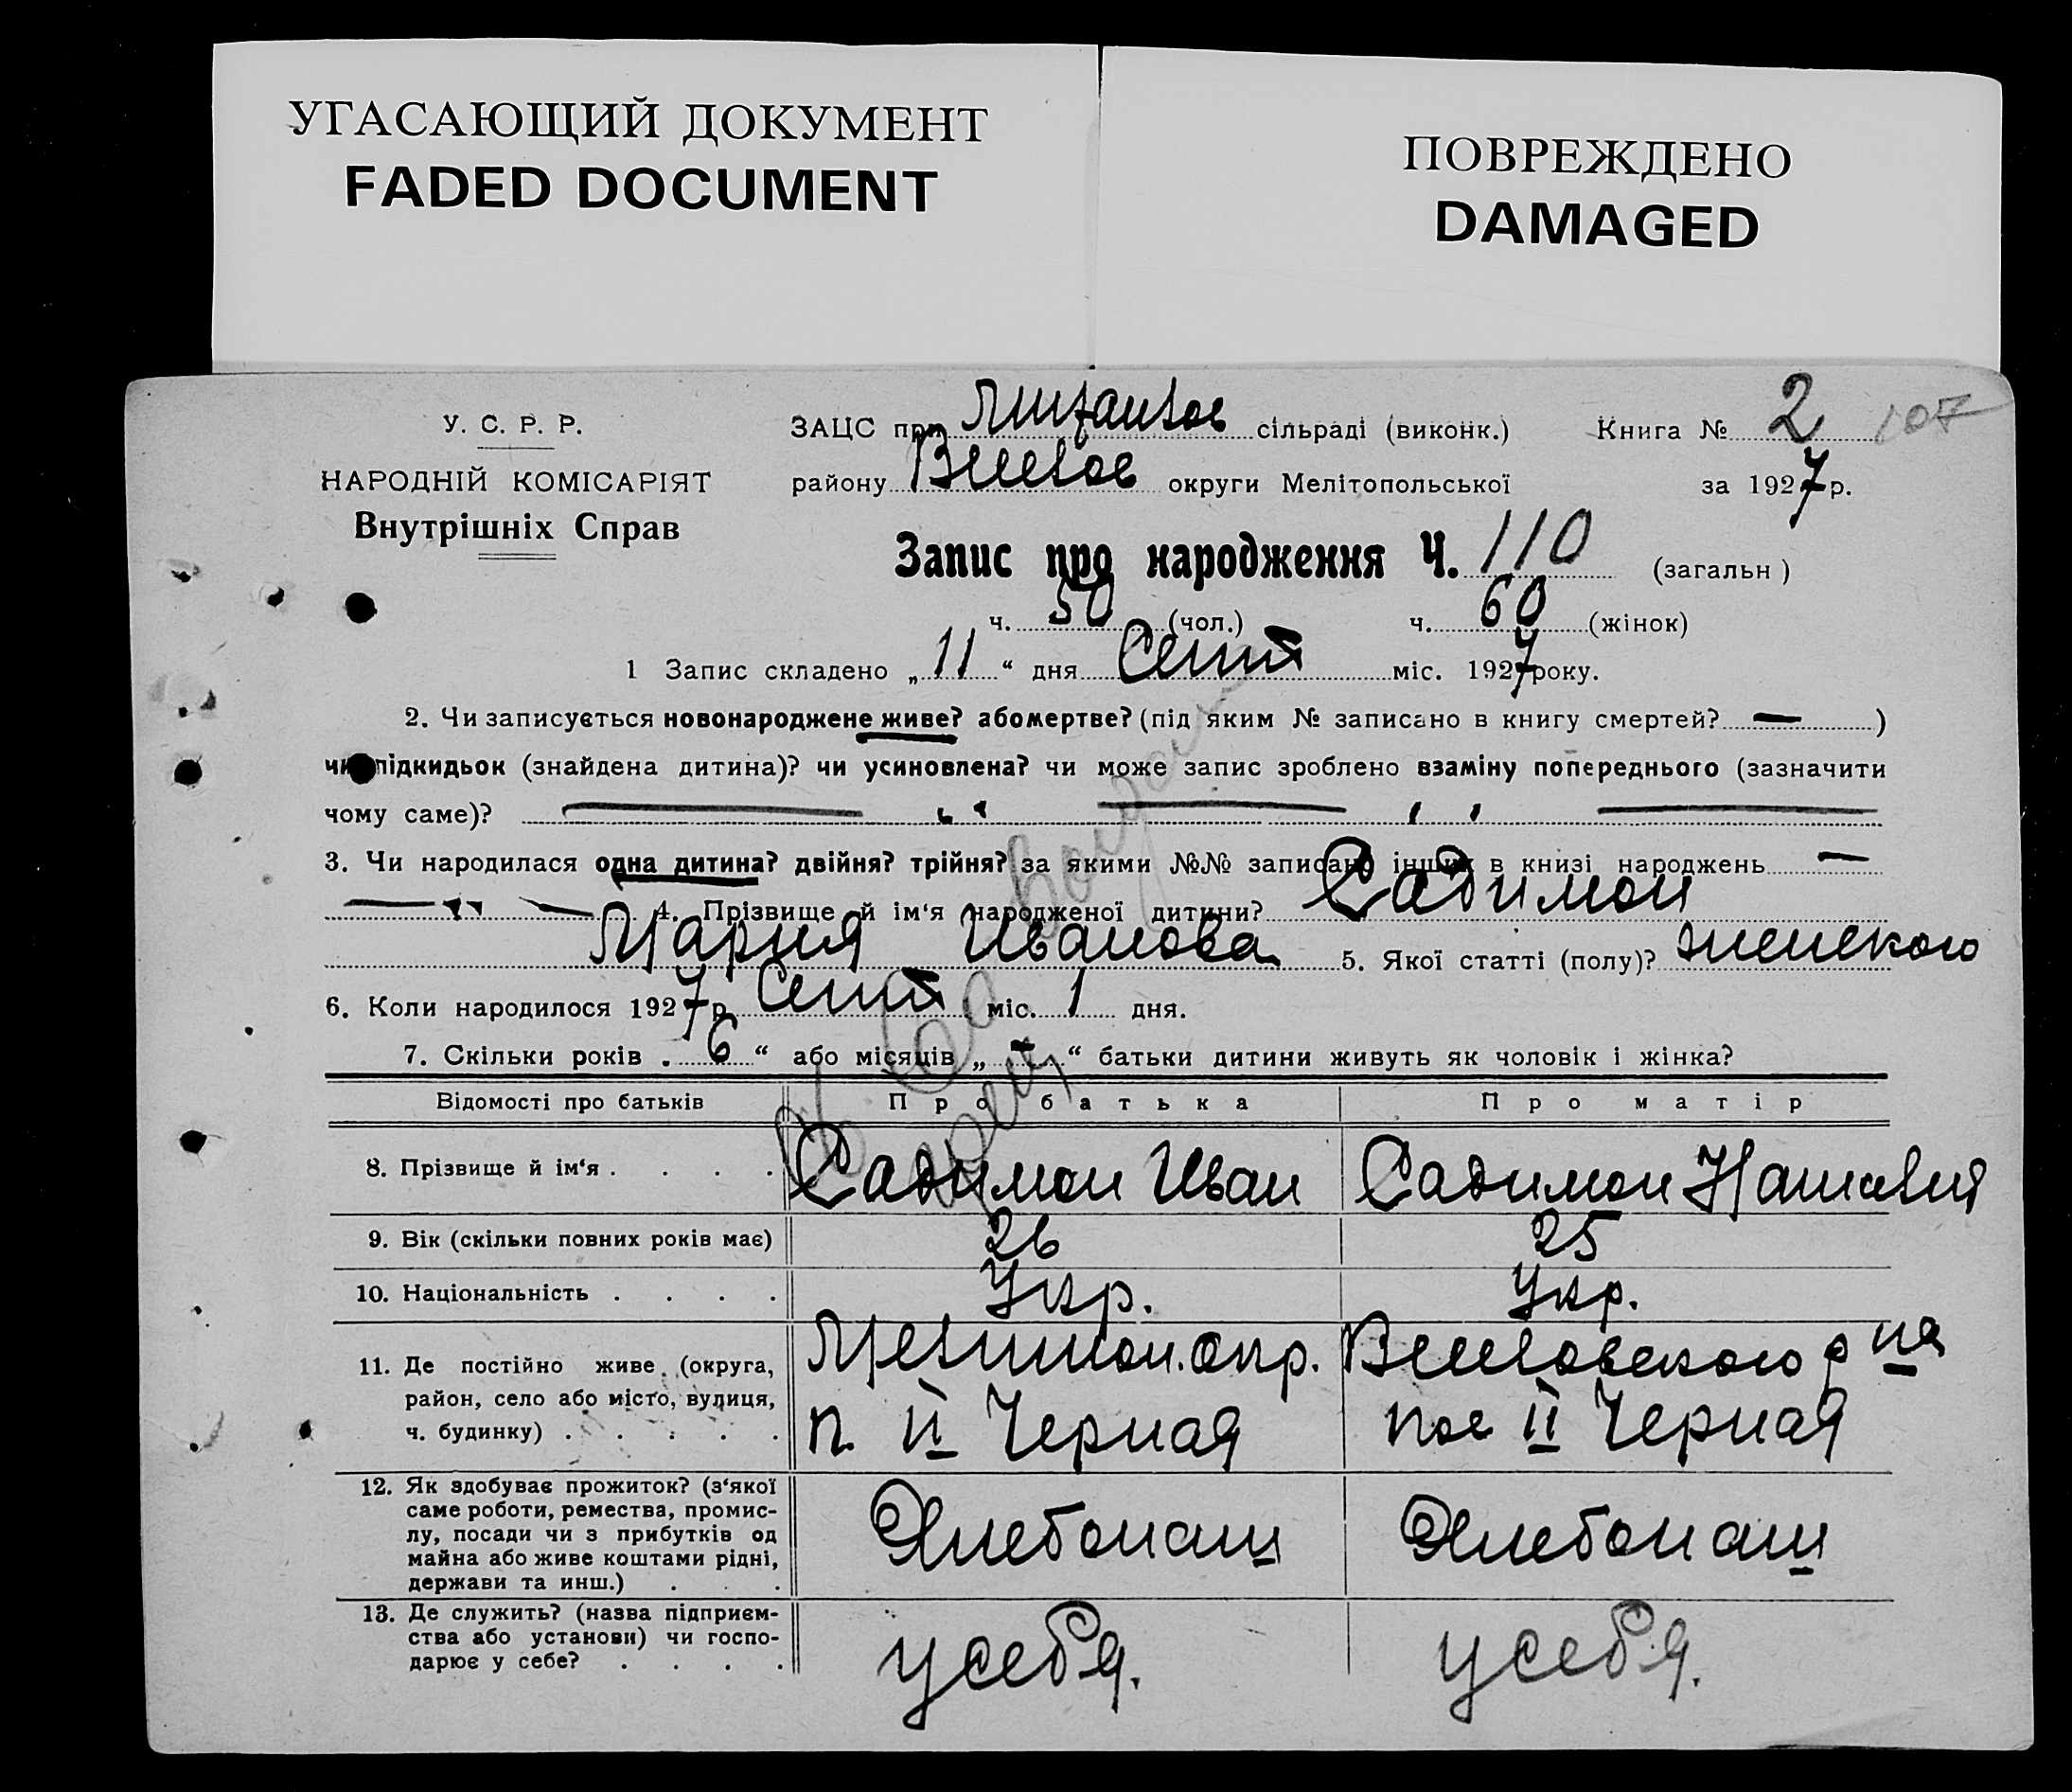 УГАСАЮЩИЙ ДОКУМЕНТ
FADED DOCUMENT
ПОВРЕЖДЕНО
DAMAGED
У. С. Р. Р.
НАРОДНІЙ КОМІСАРІЯТ
Внутрішніх Справ
ЗАЦС при сільраді (виконк.) Книга № 2 107
району округи Мелітопольської за 1927 р.
Запис про народження Ч. 110 (загальн)
ч. 50 (чол.) ч. 60 (жінок)
1 Запис складено „ 11 “ дня Сент міс. 1927 року.
2. Чи записується новонароджене живе? або мертве? (під яким № записано в книгу смертей? — )
чи підкидьок (знайдена дитина)? чи усиновлена? чи може запис зроблено взаміну попереднього (зазначити
чому саме)? — „ — „ —
3. Чи народилася одна дитина? двійня? трійня? за якими №№ записано інших в книзі народжень —
— „ — 4. Прізвище й ім‘я народженої дитини? Садимон
Мария Иванова 5. Якої статті (полу)? женского
6. Коли народилося 1927 р. Сент міс. 1 дня.
7. Скільки років „ 6 “ або місяців „ — “ батьки дитини живуть як чоловік і жінка?
Відомості про батьків Про батька Про матір
8. Прізвище й ім‘я . . . . Садимон Иван Садимон Наталия
9. Вік (скільки повних років має) 26 25
10. Національність . . . . Укр. Укр.
11. Де постійно живе (округа, район, село або місто, вулиця, ч. будинку) . . . . . Мелитоп. окр. п. II Черная пос II Черная
12. Як здобуває прожиток? (з‘якої саме роботи, ремества, промислу, посади чи з прибутків од майна або живе коштами рідні, держави та инш.) . . . Хлебопаш Хлебопаш
13. Де служить? (назва підприємства або установи) чи господарює у себе? . . . . у себя. у себя.